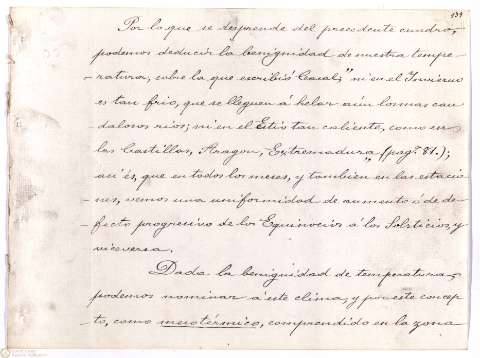 139
Por lo que se desprende del precedente cuadro,
podemos deducir la benignidad de nuestra tempe-
-ratura, sobre la que escribió Casal, "ni en el Invierno
es tan frio, que se lleguen á helar aun los mas cau-
-dalosos rios; ni en el Estio tan caliente, como en
las Castillas, Aragon, Extremadura" (pagª 81.);
asi es, que en todos los meses, y tambien en las estacio-
-nes, vemos una uniformidad de aumento ó de de-
-fecto progresivo de los Equinocios á los Solsticios, y
viceversa.
Dada la benignidad de temperatura,
podemos nominar á este clima, y por este concep-
to, como mesotérmico, comprendido en la zona